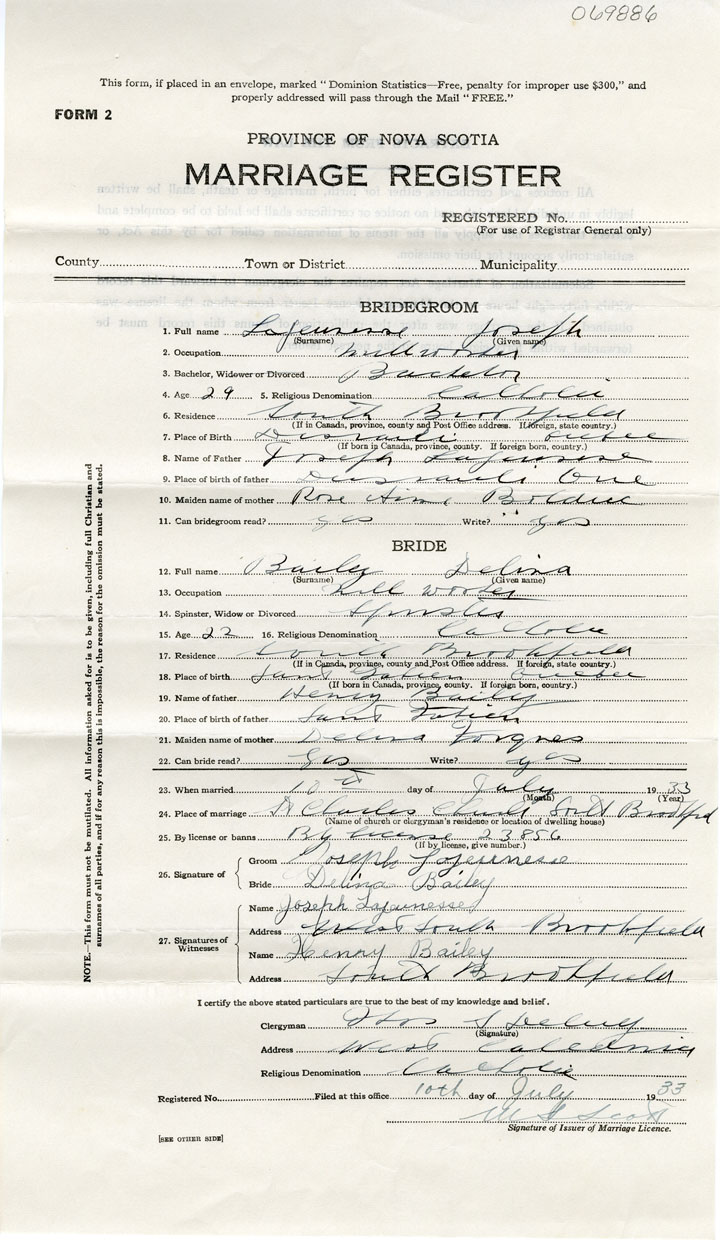 069886
This form, if placed in an envelope, marked “ Dominion Statistics—Free, penalty for improper use $300,” and
properly addressed will pass through the Mail “ FREE.”
FORM 2
PROVINCE OF NOVA SCOTIA
MARRIAGE REGISTER
REGISTERED No.
(For use of Registrar General only)
County Town or District Municipality
BRIDEGROOM
1. Full name Lajeunesse Joseph
(Surname) (Given name)
2. Occupation mill worker
3. Bachelor, Widower or Divorced Bachelor
4. Age 29 5. Religious Denomination Catholic
6. Residence South Brookfield
(If in Canada, province, county and Post Office address. If foreign, state country.)
7. Place of Birth Disraeli Quebec
(If born in Canada, province, county. If foreign born, country.)
8. Name of Father Joseph Lajeunesse
9. Place of birth of father Disraeli Que
10. Maiden name of mother Rose Bolduc
11. Can bridegroom read? yes Write? yes
BRIDE
12. Full name Bailey Delina
(Surname) (Given name)
13. Occupation Mill worker
14. Spinster, Widow or Divorced Spinster
15. Age 22 16. Religious Denomination Catholic
17. Residence South Brookfield
(If in Canada, province, county and Post Office address. If foreign, state country.)
18. Place of birth Quebec
(If born in Canada, province, county. If foreign born, country.)
19. Name of father Henry Bailey
20. Place of birth of father
21. Maiden name of mother Delina Forgues
22. Can bride read? yes Write? yes
23. When married 10th day of July 1933
(Month) (Year)
24. Place of marriage St Charles Church South Brookfield
(Name of church or clergyman's residence or location of dwelling house)
25. By license or banns By license 23856
(If by license, give number.)
26. Signature of
Groom Joseph Lajeunesse
Bride Delina Bailey
27. Signatures of Witnesses
Name Joseph Lajeunesse
Address West South Brookfield
Name Henry Bailey
Address South Brookfield
I certify the above stated particulars are true to the best of my knowledge and belief.
Clergyman
(Signature)
Address West Caledonia
Religious Denomination Catholic
Registered No. Filed at this office 10th day of July 1933
Scott
Signature of Issuer of Marriage Licence.
[SEE OTHER SIDE]
NOTE.—This form must not be mutilated. All information asked for is to be given, including full Christian and
surnames of all parties, and if for any reason this is impossible, the reason for the omission must be stated.